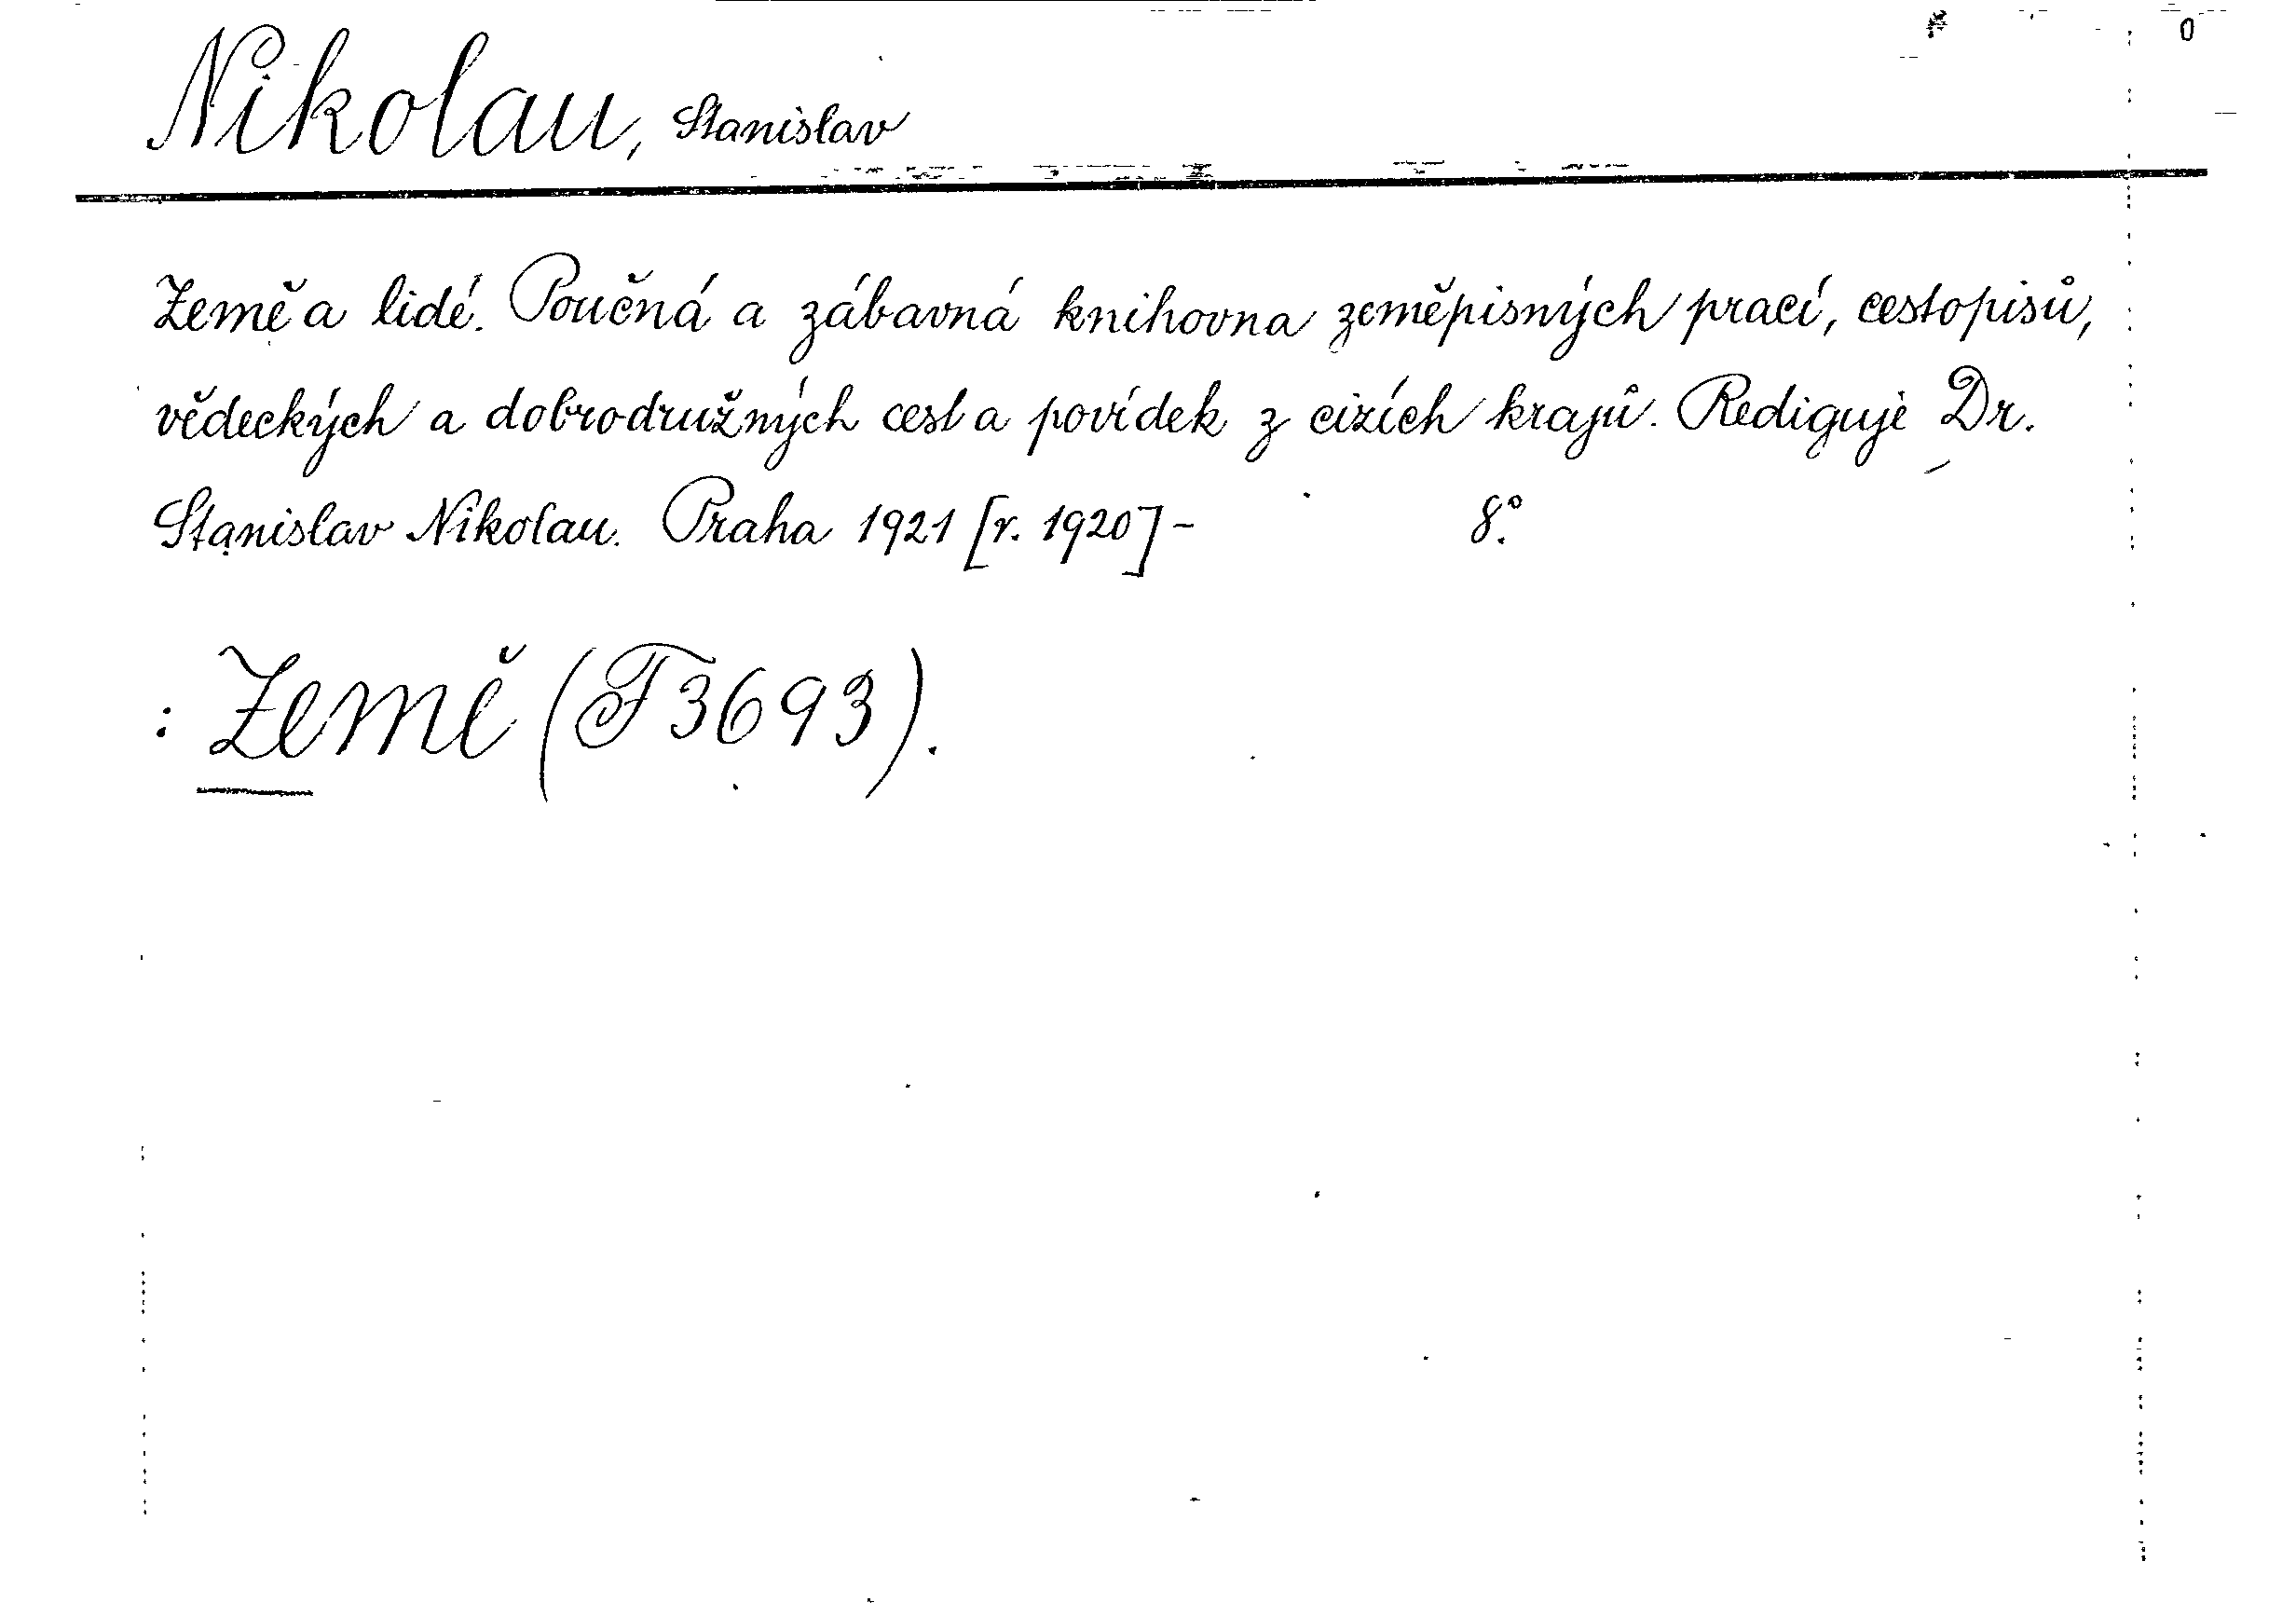 Nikolau, Stanislav
Země a lidé. Poučná a zábavná knihovna zeměpisných prací, cestopisů,
vědeckých a dobrodružných cest a povídek z cizích krajů. Rediguje Dr.
Stanislav Nikolau. Praha 1921 [r. 1920] - 8°.
: Země (F 3693).